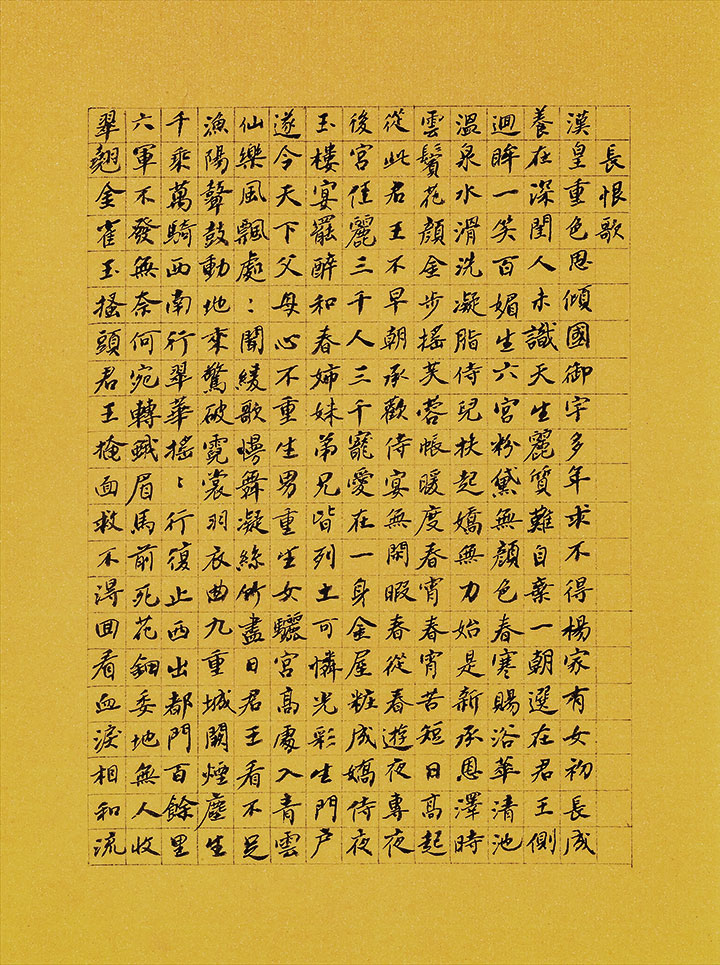 長恨歌
漢皇重色思傾國御宇多年求不得楊家有女初長成
養在深閨人未識天生麗質難自棄一朝選在君王側
迴眸一笑百媚生六宮粉黛無顏色春寒賜浴華清池
溫泉水滑洗凝脂侍兒扶起嬌無力始是新承恩澤時
雲鬢花顏金步搖芙蓉帳暖度春宵春宵苦短日高起
從此君王不早朝承歡侍宴無閑暇春從春遊夜專夜
後宮佳麗三千人三千寵愛在一身金屋粧成嬌侍夜
玉樓宴罷醉和春姊妹弟兄皆列土可憐光彩生門戶
遂令天下父母心不重生男重生女驪宮高處入青雲
仙樂風飄處〻聞緩歌慢舞凝絲竹盡日君王看不足
漁陽鼙鼓動地來驚破霓裳羽衣曲九重城闕煙塵生
千乘萬騎西南行翠華搖〻行復止西出都門百餘里
六軍不發無奈何宛轉蛾眉馬前死花鈿委地無人收
翠翹金雀玉搔頭君王掩面救不得回看血淚相和流